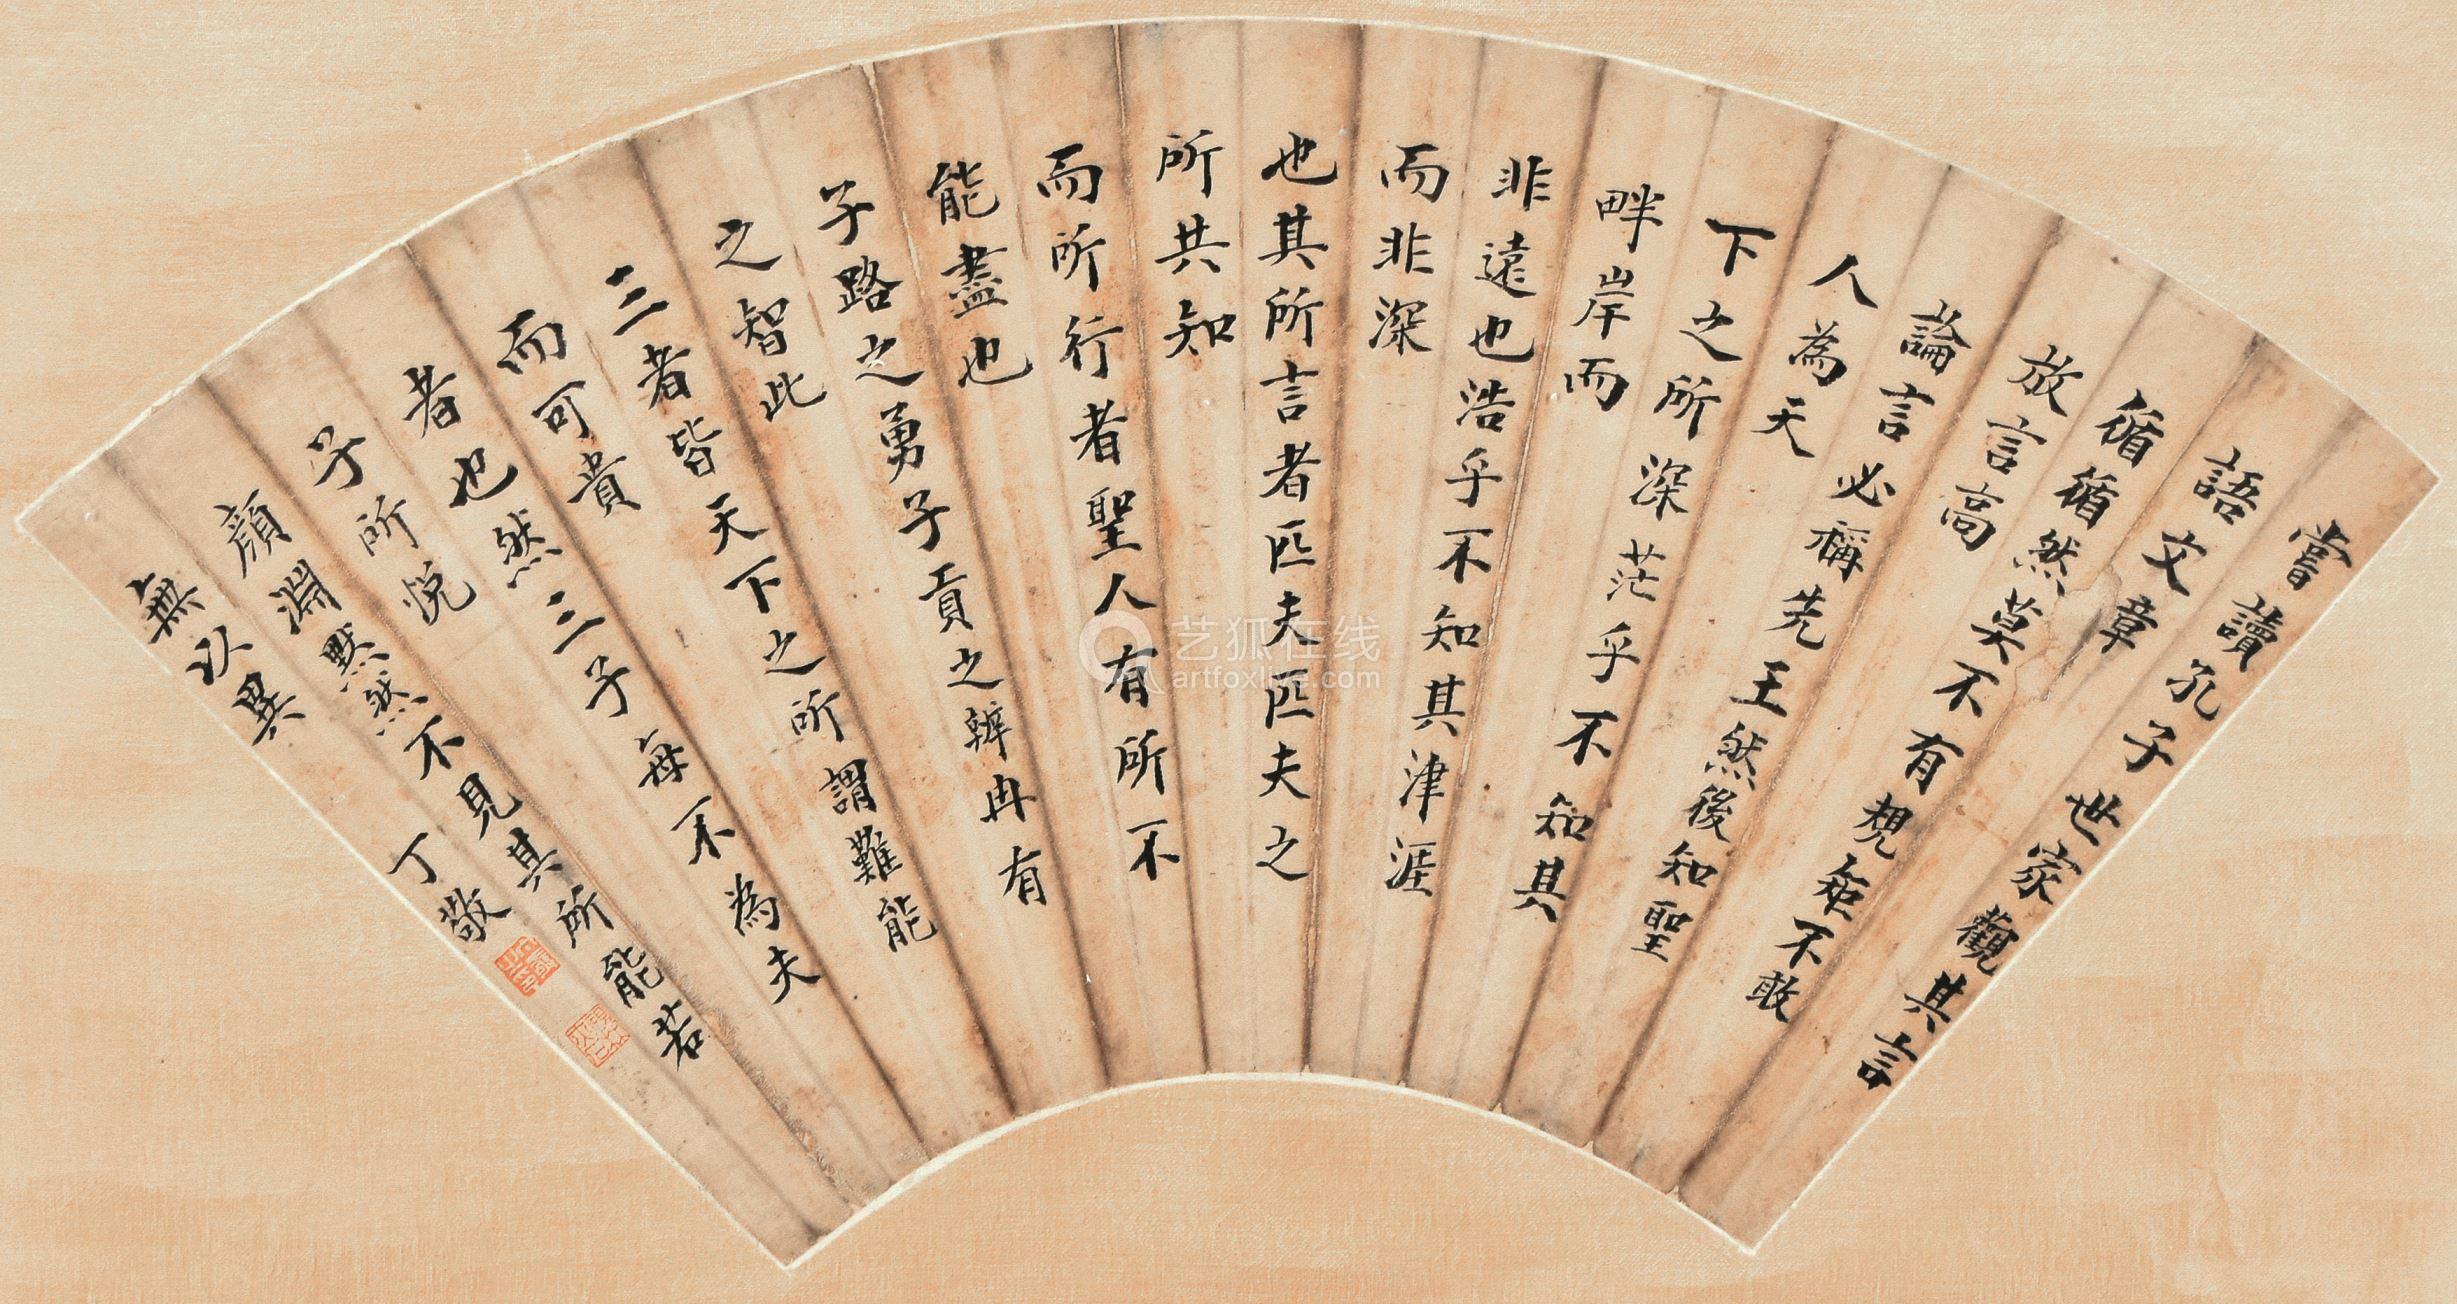 嘗讀孔子世家觀其言
語文章
循循然莫不有規矩不敢
放言高
論言必稱先王然後知聖
人為天
下之所深茫乎不知其
畔岸而
非遠也浩乎不知其津涯
而非深
也其所言者匹夫匹夫之
所共知
而所行者聖人有所不
能盡也
子路之勇子貢之辨冉有
之智此
三者皆天下之所謂難能
而可貴
者也然三子每不為夫
子所悅
顏淵默然不見其所能若
無以異
丁敬
艺狐在线
artfoxlive.com